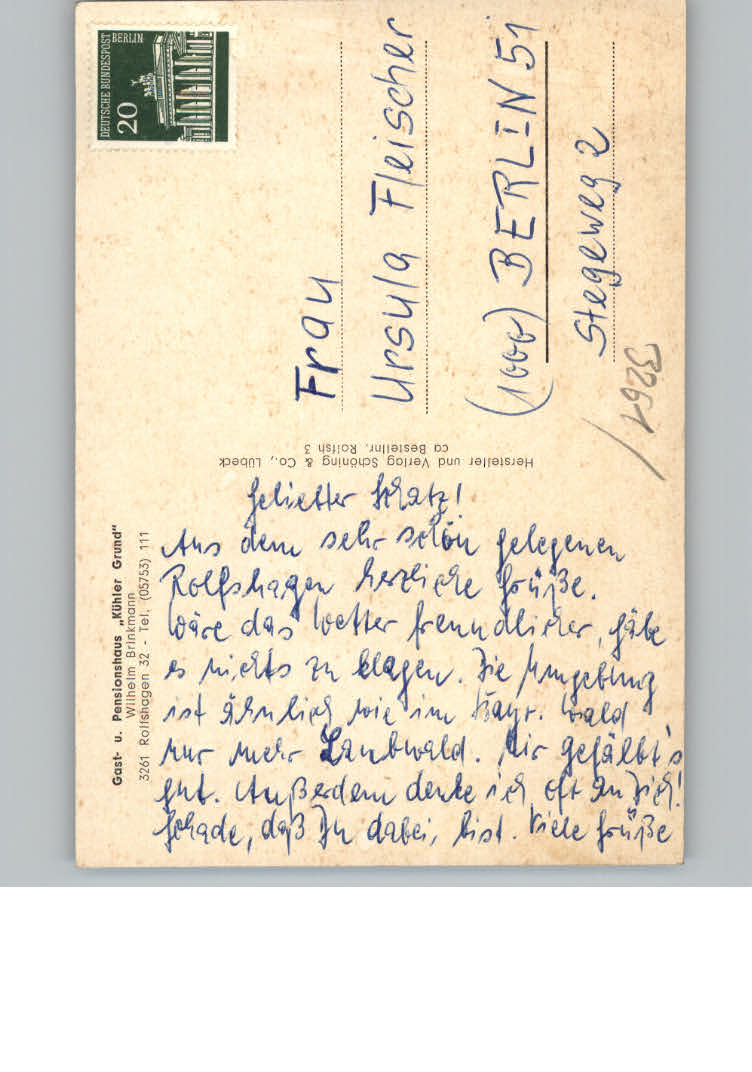 DEUTSCHE BUNDESPOST
BERLIN
20
Frau
Ursula Fleischer
(1000) BERLIN 51
Stegeweg 2
3261
Hersteller und Verlag Schöning & Co., Lübeck
ca Bestellnr. Rolfsh 3
Gast- u. Pensionshaus „Kühler Grund"
Wilhelm Brinkmann
3261 Rolfshagen 32 - Tel. (05753) 111
Geliebter Schatz!
Aus dem sehr schön gelegenen
Rolfshagen herzliche Grüße.
Wäre das Wetter freundlicher, gäbe
es nichts zu klagen. Die Umgebung
ist ähnlich wie im Bayr. Wald
nur mehr Laubwald. Mir gefällt's
gut. Außerdem denke ich oft an Dich!
Schade, daß Du dabei, bist. Viele Grüße